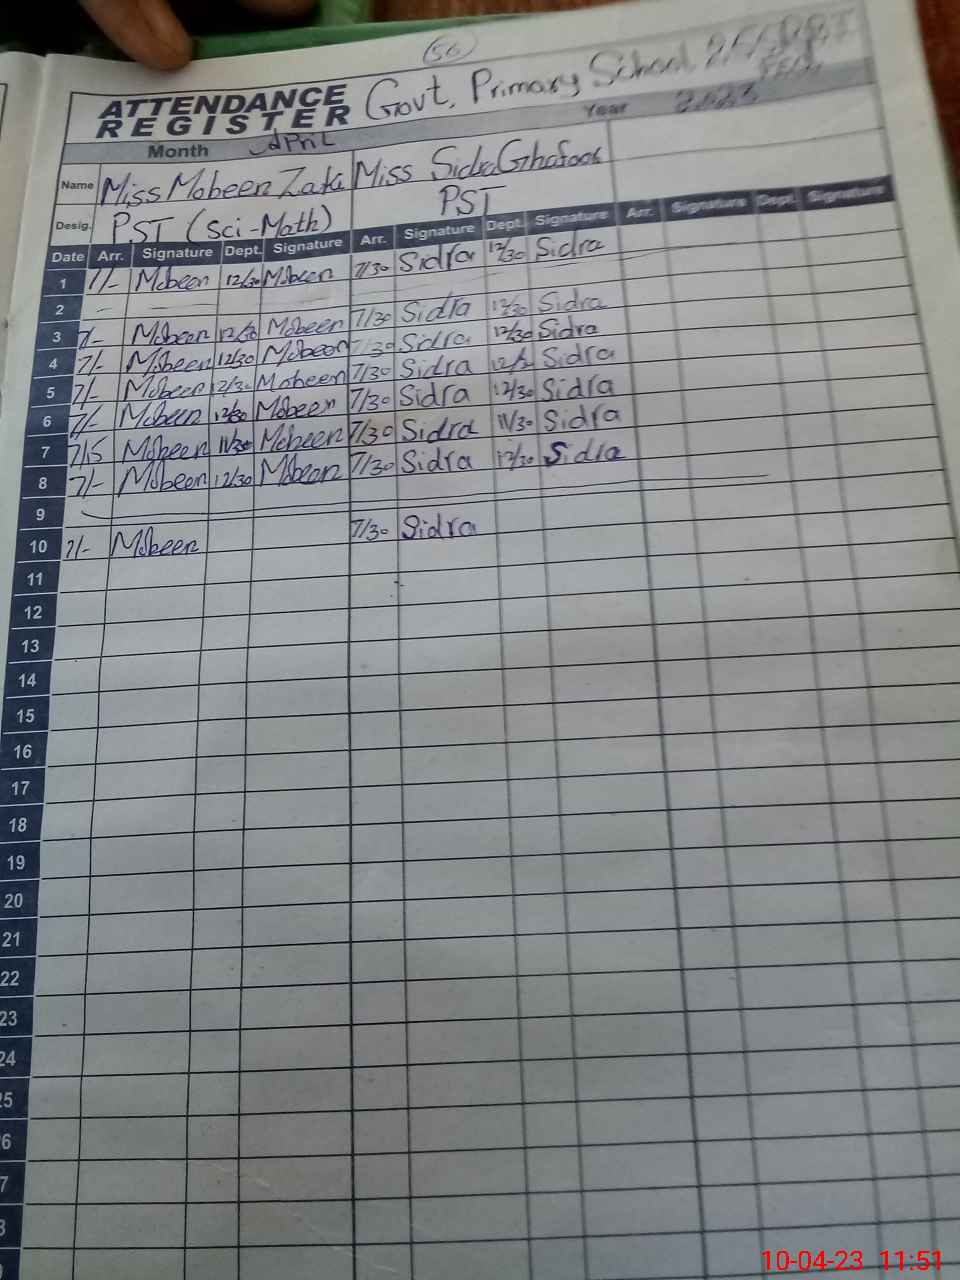 56
ATTENDANCE REGISTER Govt. Primary School
Month April Year 2023
Name Miss Mobeen Zaka Miss Sidra Ghafoor
Desig. PST (Sci-Math) PST
Date Arr. Signature Dept. Signature Arr. Signature Dept. Signature Arr. Signature Dept. Signature
1 7/- Mobeen 12/30 Mobeen 7/30 Sidra 12/30 Sidra
2
3 7/- Mobeen 12/30 Mobeen 7/30 Sidra 12/30 Sidra
4 7/- Mobeen 12/30 Mobeen 7/30 Sidra 12/30 Sidra
5 7/- Mobeen 12/30 Mobeen 7/30 Sidra Sidra
6 7/- Mobeen 12/30 Mobeen 7/30 Sidra 12/30 Sidra
7 7/15 Mobeen 11/30 Mobeen 7/30 Sidra 11/30 Sidra
8 7/- Mobeen 12/30 Mobeen 7/30 Sidra 12/30 Sidra
9
10 7/- Mobeen 7/30 Sidra
11
12
13
14
15
16
17
18
19
20
21
22
23
24
25
6
7
8
10-04-23 11:51